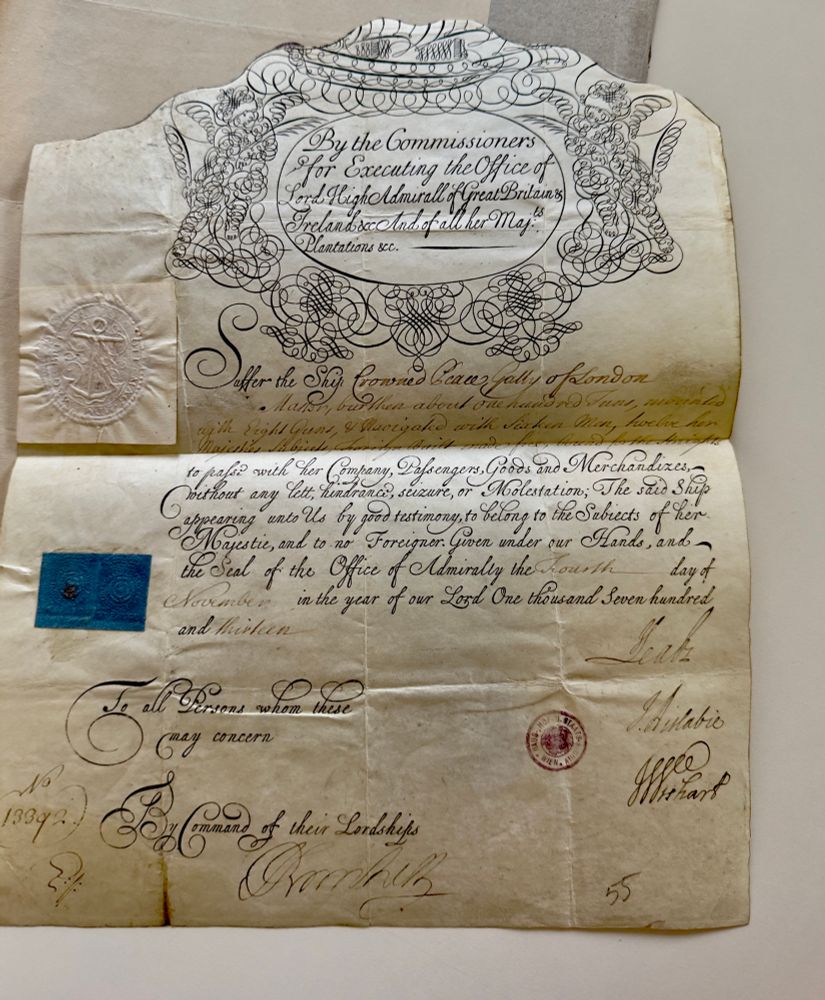 By the Commissioners
for Executing the Office of
Lord High Admirall of Great Britain &
Ireland &c And of all her Maj.ts
Plantations &c.
Suffer the Ship Crowned Peace Gally of London
Master, burthen about one hundred Tuns, mounted
with Eight Guns, & Navigated with Sixteen Men, twelve her
Majesties Subjects, Foreign Built
to pass with her Company, Passengers, Goods and Merchandizes,
without any lett, hindrance, seizure, or Molestation; The said Ship
appearing unto Us by good testimony, to belong to the Subjects of her
Majestie, and to no Foreigner. Given under our Hands, and
the Seal of the Office of Admiralty the Fourth day of
November in the year of our Lord One thousand Seven hundred
and thirteen
To all Persons whom these
may concern
J. Aislabie
Wishart
HAUS-, HOF- U. STAATS-
WIEN
No
13392
By Command of their Lordships
55